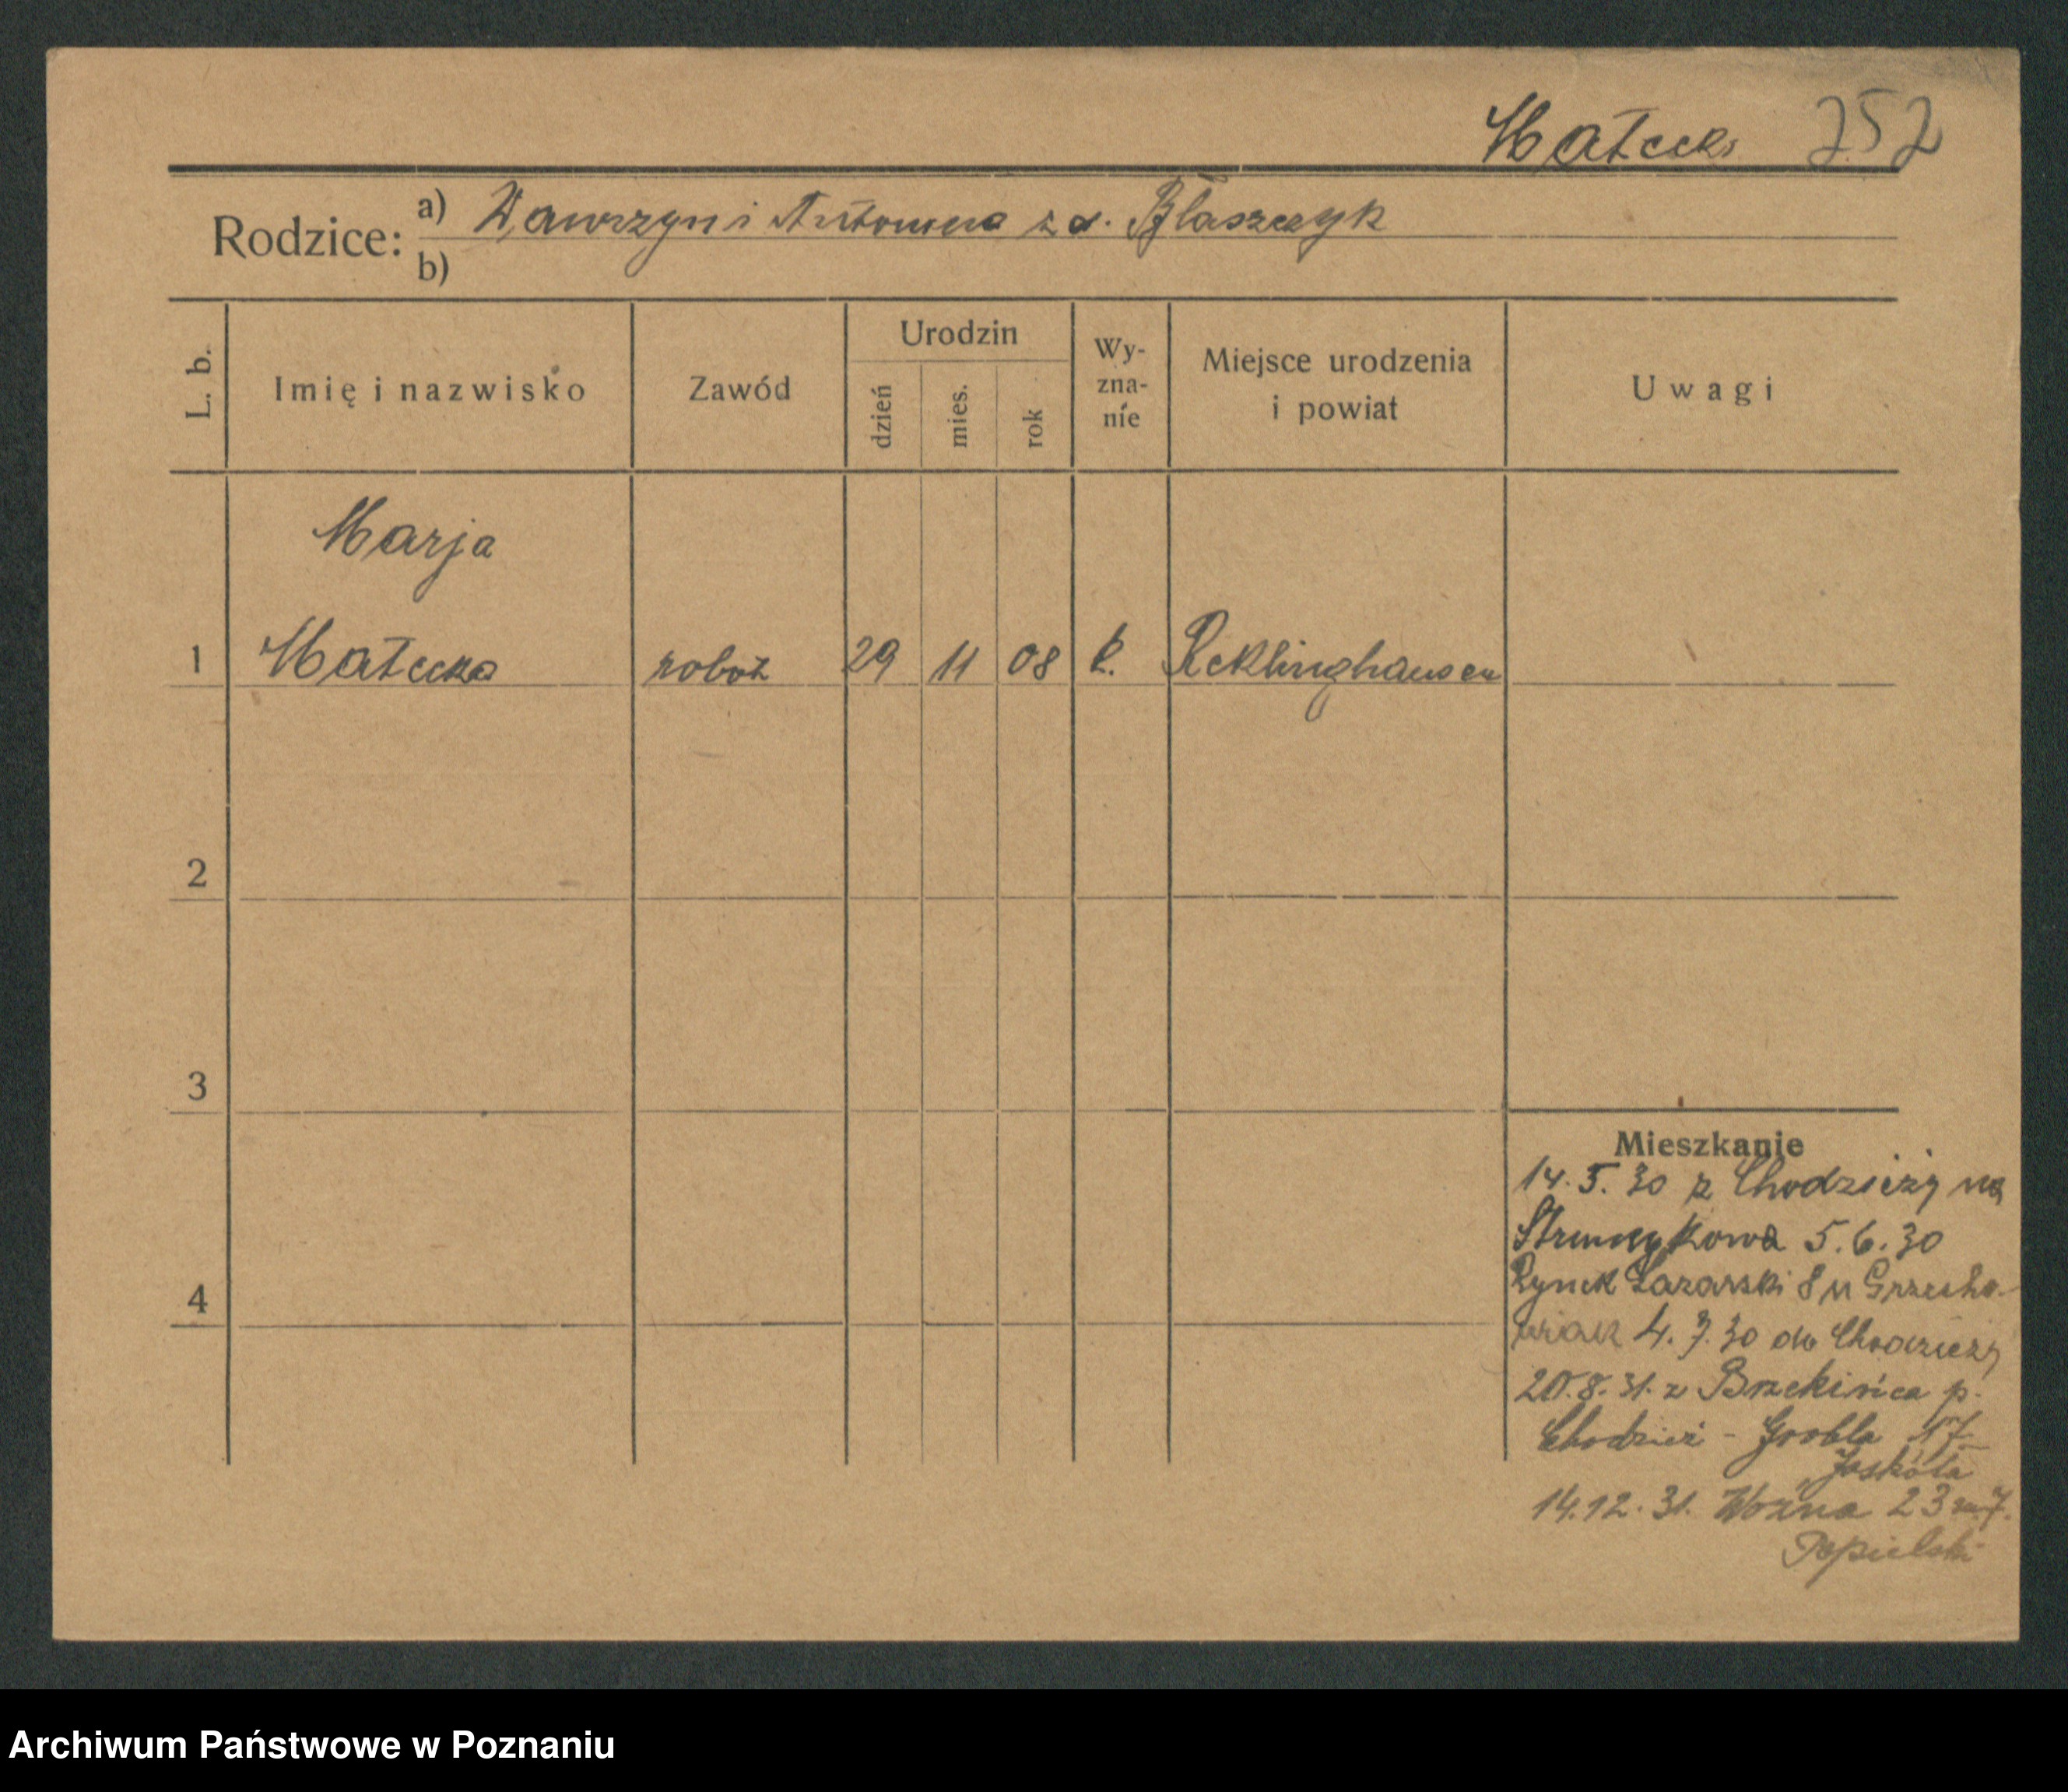 Małecki 252
Rodzice: a) Wawrzyn i Antonina z d. Błaszczyk
b)
L. b. Imię i nazwisko Zawód Urodzin dzień mies. rok Wy-zna-nie Miejsce urodzenia i powiat Uwagi
Marja
1 Małecka robot 29 11 08 k. Reklinghausen
2
3
Mieszkanie
14.5.30 z Chodzieży na
Strumykowa 5.6.30
4 Rynek Łazarski 8 u Grzesko-
wiak 4.7.30 do Chodzieży
20.8.31. z Brzekińca p.
Chodzież - Grobla 17
Jaskóła
14.12.31. Woźna 23 m 7.
Popielski
Archiwum Państwowe w Poznaniu